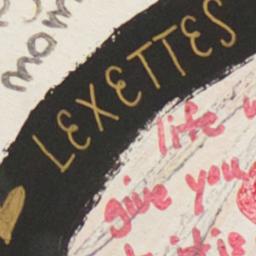 mom
LEXETTES
life
give you